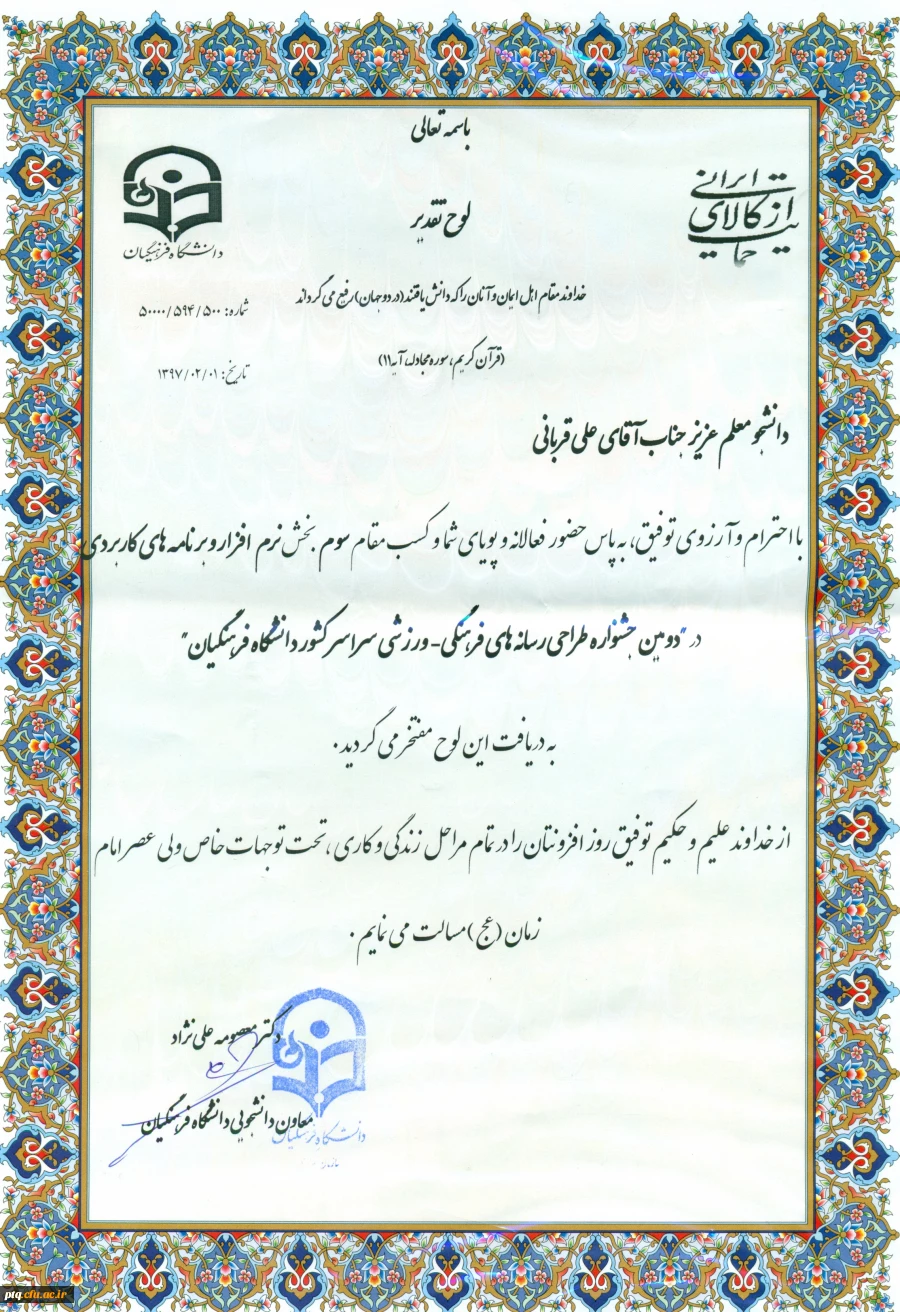 باسمه تعالی
حمایت از کالای ایرانی
دانشگاه فرهنگیان
لوح تقدیر
خداوند مقام اهل ایمان و آنان را که دانش یافتند (در دو جهان) رفیع می گرداند
شماره: ۵۰۰۰۰/۵۹۴/۵۰۰
(قرآن کریم، سوره مجادله، آیه ۱۱)
تاریخ: ۱۳۹۷/۰۲/۰۱
دانشجو معلم عزیز جناب آقای علی قربانی
با احترام و آرزوی توفیق، به پاس حضور فعالانه و پویای شما و کسب مقام سوم بخش نرم افزار و برنامه های کاربردی
در "دومین جشنواره طراحی رسانه های فرهنگی- ورزشی سراسر کشور دانشگاه فرهنگیان"
به دریافت این لوح مفتخر می گردید.
از خداوند علیم و حکیم توفیق روز افزونتان را در تمام مراحل زندگی و کاری ، تحت توجهات خاص ولی عصر امام
زمان (عج) مسالت می نمایم .
دکتر معصومه علی نژاد
معاون دانشجویی دانشگاه فرهنگیان
دانشگاه فرهنگیان
ptq.cfu.ac.ir